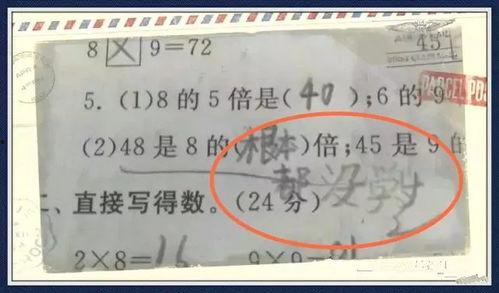 8 × 9=72
5. (1)8 的 5 倍是(40);6 的 9
(2)48 是 8 的(根本)倍;45 是 9 的
都没学
二、直接写得数。(24 分)
2×8=16 9×9=81
45
PARCEL PO